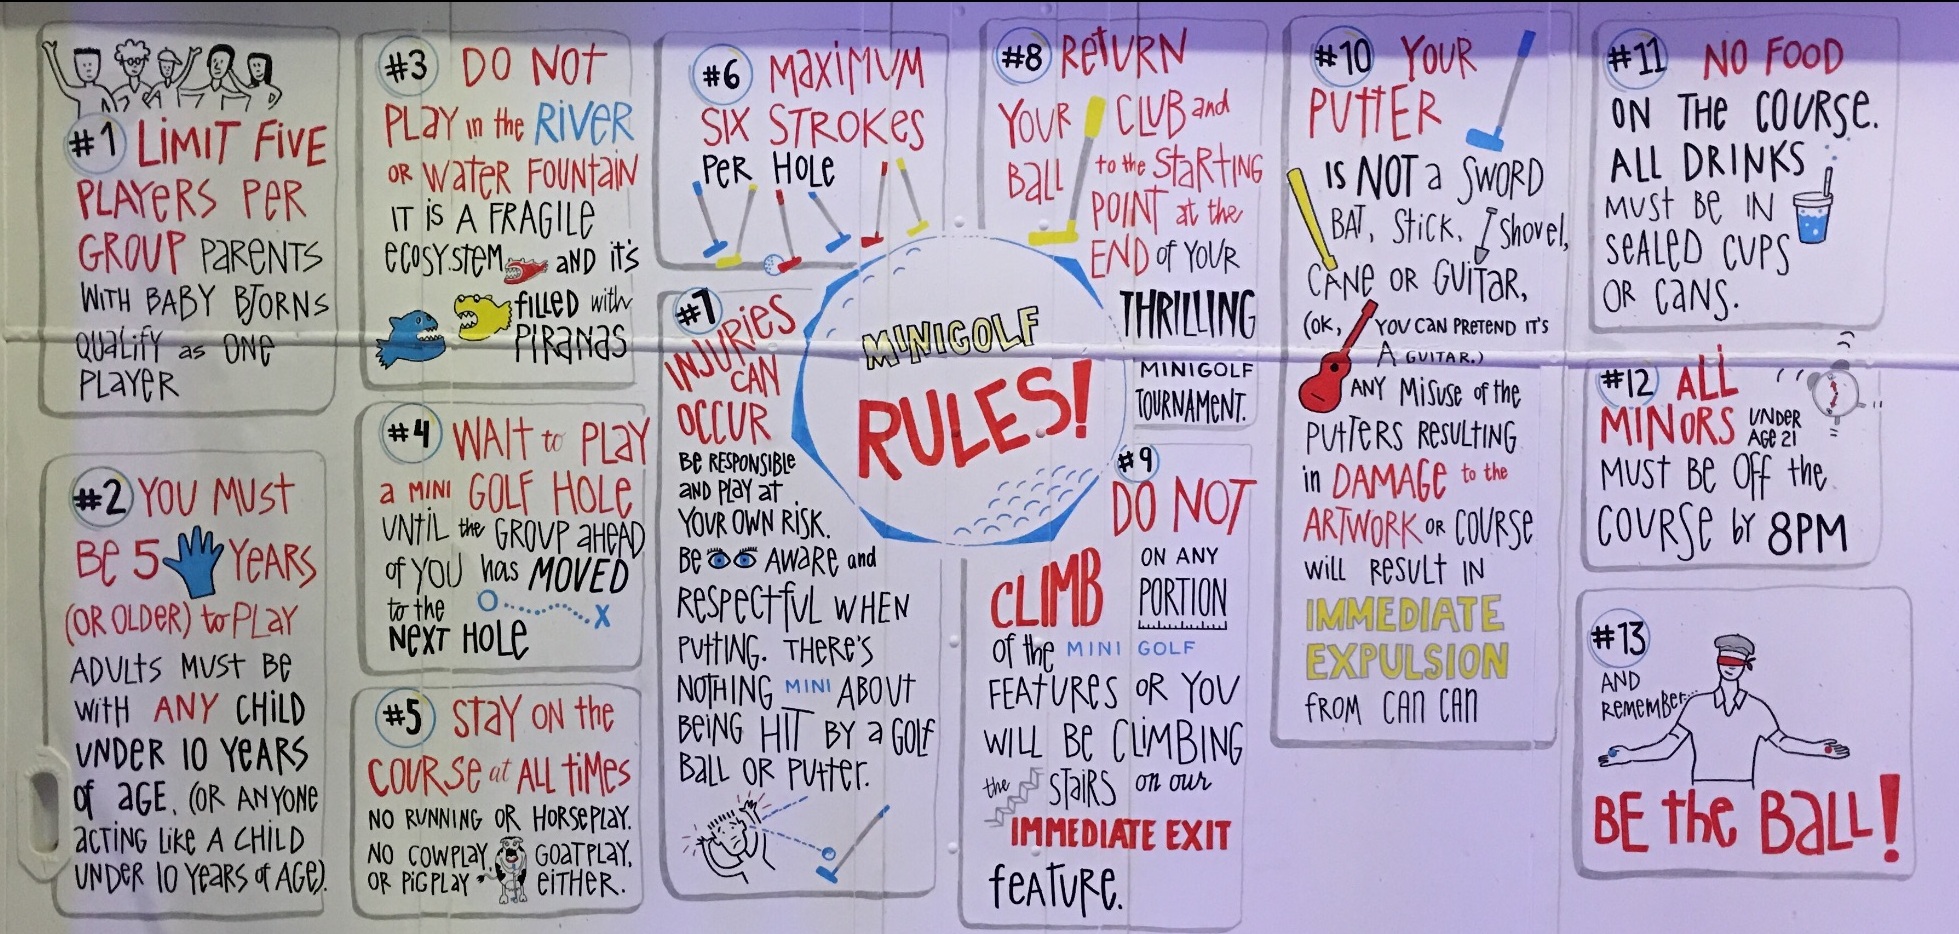 #1 LIMIT FIVE
PLAYERS PER
GROUP PARENTS
WITH BABY BJORNS
QUALIFY as ONE
PLAYER
#2 YOU MUST
BE 5 YEARS
(OR OLDER) to PLAY
ADULTS MUST BE
WITH ANY CHILD
UNDER 10 YEARS
of AGE. (OR ANYONE
ACTING LIKE A CHILD
UNDER 10 YEARS of AGE).
#3 DO NOT
PLAY in the RIVER
OR WATER FOUNTAIN
IT IS A FRAGILE
ECOSYSTEM AND it's
filled with
PIRANAS
#4 WAIT to PLAY
a MINI GOLF HOLE
UNTIL the GROUP AHEAD
of YOU has MOVED
to the
NEXT HOLE
#5 STAY ON the
COURSE at ALL TIMES
NO RUNNING OR HORSEPLAY.
NO COWPLAY GOATPLAY,
OR PIGPLAY EITHER.
#6 MAXIMUM
SIX STROKES
PER HOLE
#7
INJURIES
CAN
OCCUR
BE RESPONSIBLE
AND PLAY AT
YOUR OWN RISK.
BE AWARE and
RESPECTFUL WHEN
PUTTING. THERE'S
NOTHING MINI ABOUT
BEING HIT BY a GOLF
BALL OR PUTTER.
MINIGOLF
RULES!
#8 RETURN
YOUR CLUB and
BALL to the STARTING
POINT at the
END of YOUR
THRILLING
MINIGOLF
TOURNAMENT.
#9
DO NOT
CLIMB ON ANY
PORTION
of the MINI GOLF
FEATURES OR YOU
WILL BE CLIMBING
the STAIRS on our
IMMEDIATE EXIT
feature.
#10 YOUR
PUTTER
IS NOT a SWORD
BAT, STICK, Shovel,
CANE OR GUITAR,
(OK, YOU CAN PRETEND IT'S
A GUITAR.)
ANY MISUSE of the
PUTTERS RESULTING
in DAMAGE to the
ARTWORK OR COURSE
WILL RESULT IN
IMMEDIATE
EXPULSION
FROM CAN CAN
#11 NO FOOD
ON THE COURSE.
ALL DRINKS
MUST BE IN
SEALED CUPS
OR CANS.
#12 ALL
MINORS UNDER
AGE 21
MUST BE OFF the
COURSE by 8PM
#13
AND
REMEMBER...
BE the BALL!